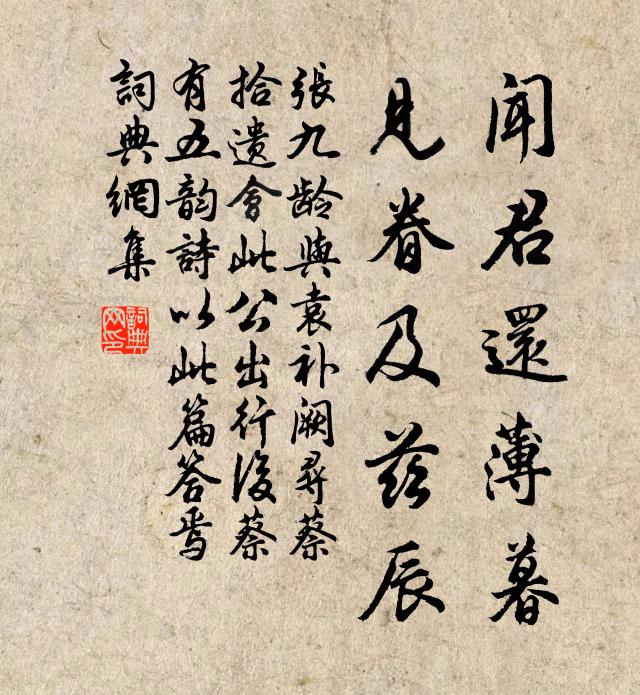 闻君還薄暮
見眷及茲辰
張九龄與袁补阙尋蔡
拾遗會此公出行後蔡
有五韵詩以此篇答焉
詞典網集
詞典网印